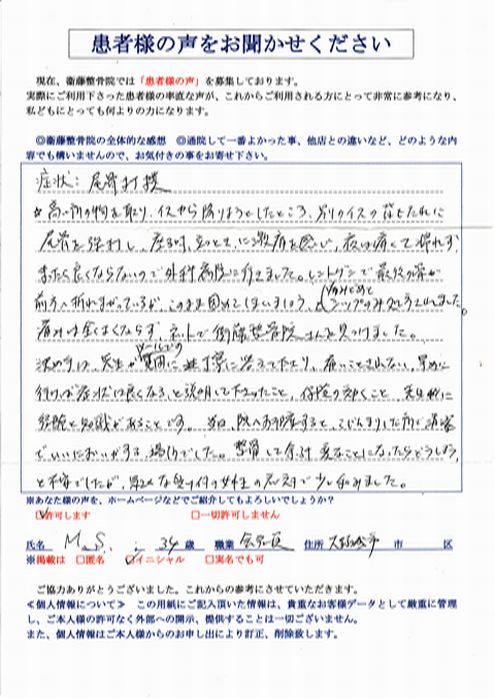 患者様の声をお聞かせください
現在、衛藤整骨院では「患者様の声」を募集しております。
実際にご利用下さった患者様の率直な声が、これからご利用される方にとって非常に参考になり、
私どもにとっても何よりの力になります。
◎衛藤整骨院の全体的な感想　◎通院して一番よかった事、他店との違いなど、どのような内
容でも構いませんので、お気付きの事をお寄せ下さい。
症状：尾骨打撲
☆高い所の物を取り、イスから降りようとしたところ、別のイスの背もたれに
尾骨を強打し、座る時、立つときに激痛を感じ、夜は痛くて眠れず
またら良くならないので外科病院に行きました。レントゲンで最後の骨が
前方へ折れまがっているが、このまま固めてしまいましょう、と
痛みどめと
シップのみ処方されました。
痛みは全くよくならず、ネットで衛藤整骨院さんを見つけました。
決め手は、先生が
メールでの
質問に丁寧に答えて下さり、痛いことはされない、早めに
行けば症状は良くなると説明して下さったこと、保険の効くこと、先生が
経験と知識があることです。当日、院へお邪魔すると、こぢんまりした所で清潔
でいいにおいがする場所でした。整骨して余計変なことになったらどうしよう、
と不安でしたが、受付の女性の応対で少し和みました。
※あなた様の声を、ホームページなどでご紹介してもよろしいでしょうか？
☑許可します　□一切許可しません
氏名　M.S.　34歳　職業　会社員　住所　大野城市　市　区
※掲載は　□匿名　☑イニシャル　□実名でも可
ご協力ありがとうございました。これからの参考にさせていただきます。
≪個人情報について≫　この用紙にご記入頂いた情報は、貴重なお客様データとして厳重に管理
し、ご本人様の許可なく外部への開示、提供することは一切ございません。
また、個人情報はご本人様からのお申し出により訂正、削除致します。